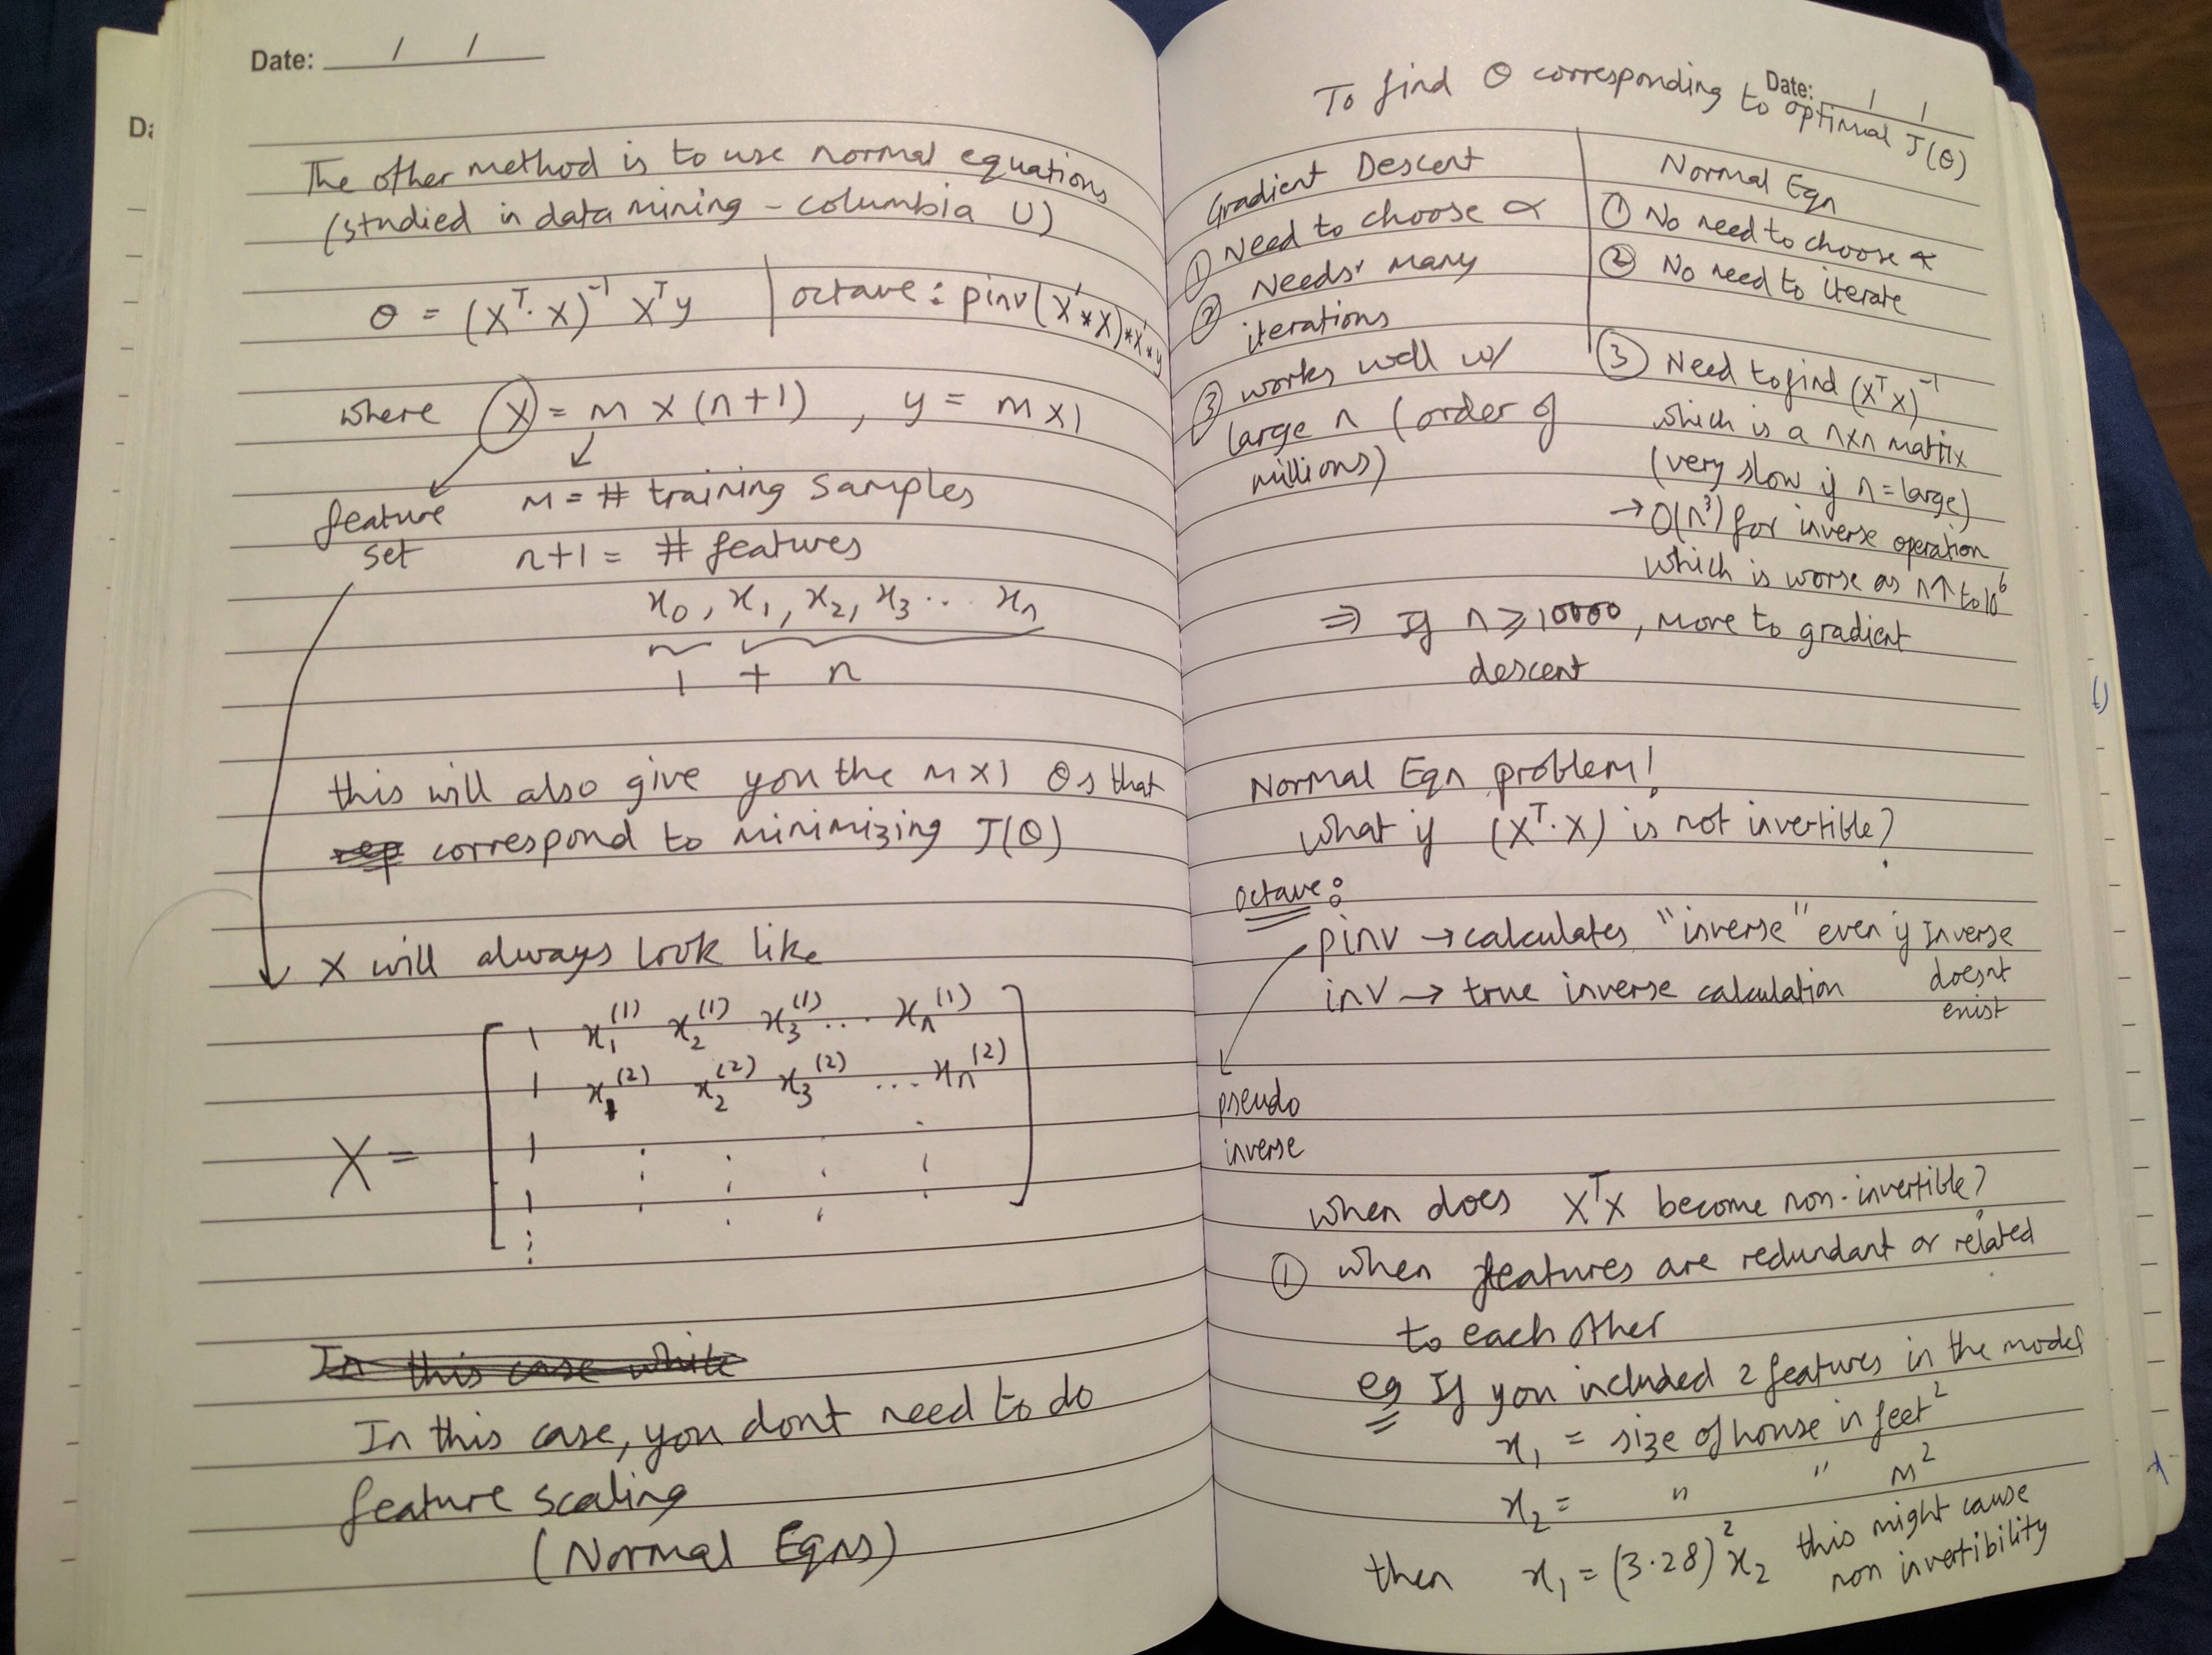 Date: / /
The other method is to use normal equations
(studied in data mining - columbia U)
θ = (X^T·X)^-1 X^T y | octave: pinv(X'*X)*X'*y
where X = m x (n+1) , y = m x 1
feature set
m = # training samples
n+1 = # features
x_0, x_1, x_2, x_3 ... x_n
1 + n
this will also give you the m x 1 θs that
correspond to minimizing J(θ)
X will always look like
1 x_1^(1) x_2^(1) x_3^(1) ... x_n^(1)
1 x_1^(2) x_2^(2) x_3^(2) ... x_n^(2)
X =
1 : : : :
1 . . . .
:
In this case while
In this case, you dont need to do
feature scaling
(Normal Eqns)
Date: / /
To find θ corresponding to optimal J(θ)
Gradient Descent
① Need to choose α
② Needs many
iterations
③ works well w/
large n (order of
millions)
Normal Eqn
① No need to choose α
② No need to iterate
③ Need to find (X^T X)^-1
which is a nxn matrix
(very slow if n = large)
→ O(n^3) for inverse operation
which is worse as n↑ to 10^6
⇒ If n ⩾ 10000, move to gradient
descent
Normal Eqn problem!
what if (X^T·X) is not invertible?
octave:
pinv → calculates "inverse" even if Inverse
doesnt
exist
inv → true inverse calculation
pseudo
inverse
when does X^T X become non-invertible?
① when features are redundant or related
to each other
eg If you included 2 features in the model
x_1 = size of house in feet^2
x_2 = " " m^2
then x_1 = (3.28)^2 x_2 this might cause
non invertibility